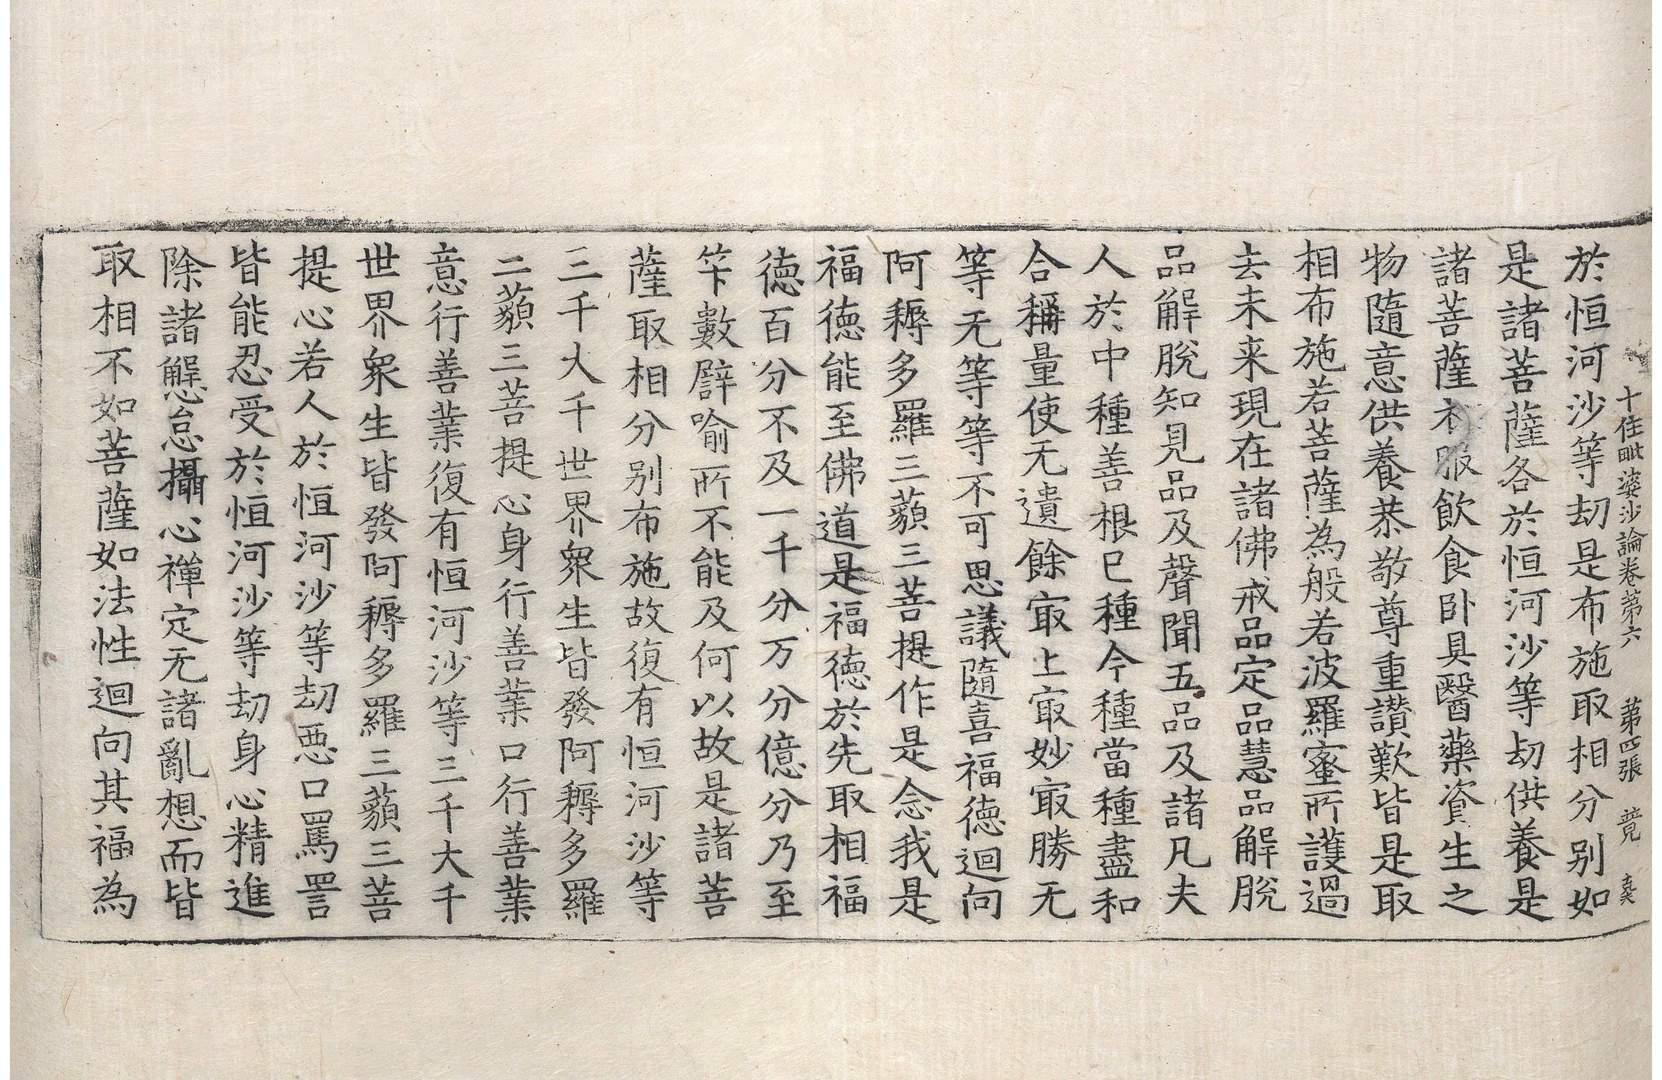 十住毗婆沙論卷第六　第四張　競
於恒河沙等劫是布施取相分别如
是諸菩薩各於恒河沙等劫供養是
諸菩薩衣服飲食卧具醫藥資生之
物隨意供養恭敬尊重讃歎皆是取
相布施若菩薩為般若波羅蜜所護過
去未来現在諸佛戒品定品慧品解脫
品解脫知見品及聲聞五品及諸凡夫
人於中種善根已種今種當種盡和
合稱量使无遺餘㝡上㝡妙㝡勝无
等无等等不可思議隨喜福徳迴向
阿耨多羅三藐三菩提作是念我是
福徳能至佛道是福徳於先取相福
徳百分不及一千分万分億分乃至
笇數譬喻所不能及何以故是諸菩
薩取相分别布施故復有恒河沙等
三千大千世界衆生皆發阿耨多羅
三藐三菩提心身行善業口行善業
意行善業復有恒河沙等三千大千
世界衆生皆發阿耨多羅三藐三菩
提心若人於恒河沙等劫惡口罵詈
皆能忍受於恒河沙等劫身心精進
除諸懈怠攝心禪定无諸亂想而皆
取相不如菩薩如法性迴向其福為